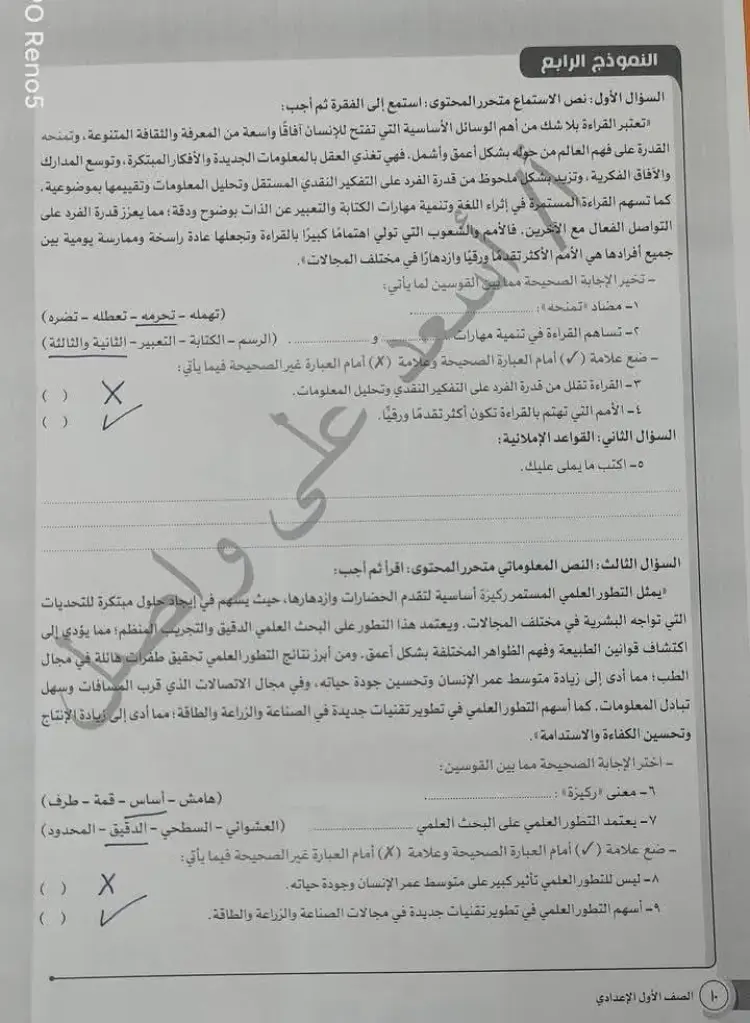 PO Reno5
النموذج الرابع
السؤال الأول: نص الاستماع متحرر المحتوى: استمع إلى الفقرة ثم أجب:
«تعتبر القراءة بلا شك من أهم الوسائل الأساسية التي تفتح للإنسان آفاقًا واسعة من المعرفة والثقافة المتنوعة، وتمنحه
القدرة على فهم العالم من حوله بشكل أعمق وأشمل، فهي تغذي العقل بالمعلومات الجديدة والأفكار المبتكرة، وتوسع المدارك
والآفاق الفكرية، وتزيد بشكل ملحوظ من قدرة الفرد على التفكير النقدي المستقل وتحليل المعلومات وتقييمها بموضوعية،
كما تسهم القراءة المستمرة في إثراء اللغة وتنمية مهارات الكتابة والتعبير عن الذات بوضوح ودقة؛ مما يعزز قدرة الفرد على
التواصل الفعال مع الآخرين، فالأمم والشعوب التي تولي اهتمامًا كبيرًا بالقراءة وتجعلها عادة راسخة وممارسة يومية بين
جميع أفرادها هي الأمم الأكثر تقدمًا ورقيًا وازدهارًا في مختلف المجالات».
- تخير الإجابة الصحيحة مما بين القوسين لما يأتي:
١- مضاد «تمنحه»: .................... (تهمله - تحرمه - تعطله - تضره)
٢- تساهم القراءة في تنمية مهارات .......... و .......... . (الرسم - الكتابة - التعبير - الثانية والثالثة)
- ضع علامة (✓) أمام العبارة الصحيحة وعلامة (✗) أمام العبارة غير الصحيحة فيما يأتي:
٣- القراءة تقلل من قدرة الفرد على التفكير النقدي وتحليل المعلومات. ✗ ( )
٤- الأمم التي تهتم بالقراءة تكون أكثر تقدمًا ورقيًا. ✓ ( )
السؤال الثاني: القواعد الإملائية:
٥- اكتب ما يملى عليك.
السؤال الثالث: النص المعلوماتي متحرر المحتوى: اقرأ ثم أجب:
«يمثل التطور العلمي المستمر ركيزة أساسية لتقدم الحضارات وازدهارها، حيث يسهم في إيجاد حلول مبتكرة للتحديات
التي تواجه البشرية في مختلف المجالات. ويعتمد هذا التطور على البحث العلمي الدقيق والتجريب المنظم؛ مما يؤدي إلى
اكتشاف قوانين الطبيعة وفهم الظواهر المختلفة بشكل أعمق. ومن أبرز نتائج التطور العلمي تحقيق طفرات هائلة في مجال
الطب؛ مما أدى إلى زيادة متوسط عمر الإنسان وتحسين جودة حياته، وفي مجال الاتصالات الذي قرب المسافات وسهل
تبادل المعلومات. كما أسهم التطور العلمي في تطوير تقنيات جديدة في الصناعة والزراعة والطاقة؛ مما أدى إلى زيادة الإنتاج
وتحسين الكفاءة والاستدامة».
- اختر الإجابة الصحيحة مما بين القوسين:
٦- معنى «ركيزة»: .................... (هامش - أساس - قمة - طرف)
٧- يعتمد التطور العلمي على البحث العلمي .................... (العشوائي - السطحي - الدقيق - المحدود)
- ضع علامة (✓) أمام العبارة الصحيحة وعلامة (✗) أمام العبارة غير الصحيحة فيما يأتي:
٨- ليس للتطور العلمي تأثير كبير على متوسط عمر الإنسان وجودة حياته. ✗ ( )
٩- أسهم التطور العلمي في تطوير تقنيات جديدة في مجالات الصناعة والزراعة والطاقة. ✓ ( )
أ/ أسعد على واصل
١٠ الصف الأول الإعدادي